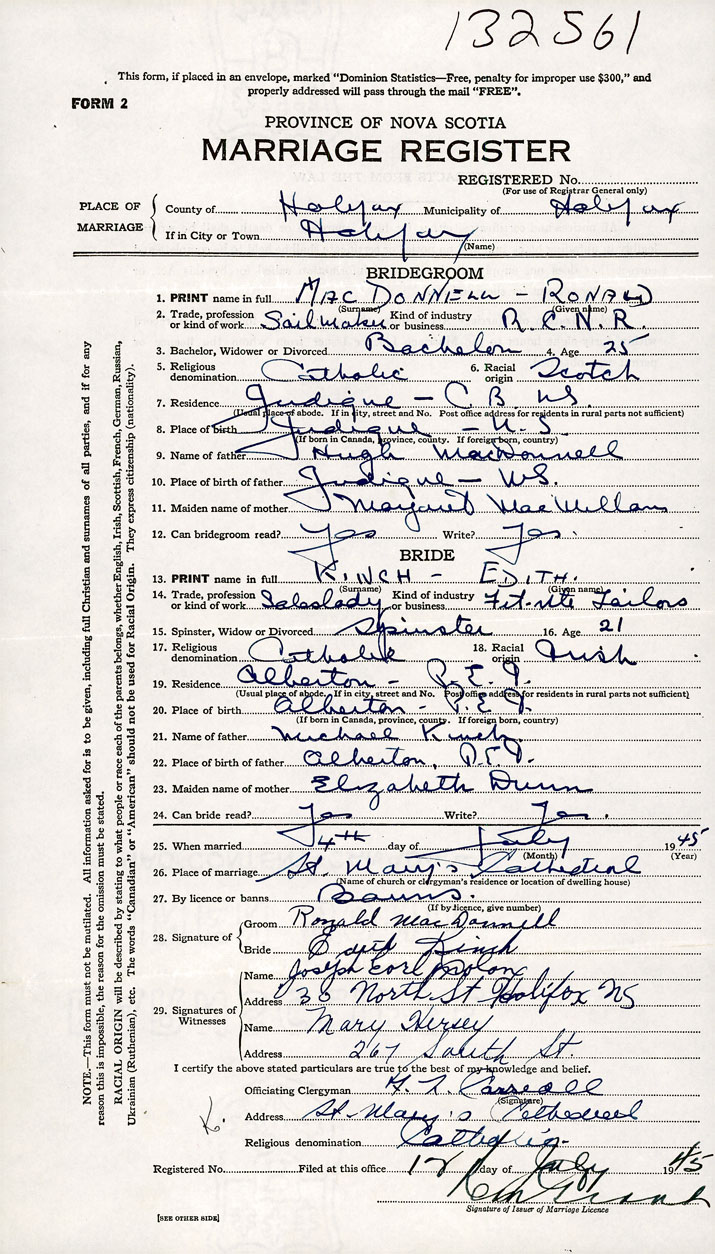 132561
This form, if placed in an envelope, marked "Dominion Statistics—Free, penalty for improper use $300," and
properly addressed will pass through the mail "FREE".
FORM 2
PROVINCE OF NOVA SCOTIA
MARRIAGE REGISTER
REGISTERED No.
(For use of Registrar General only)
PLACE OF MARRIAGE
County of Halifax Municipality of Halifax
If in City or Town Halifax
(Name)
BRIDEGROOM
1. PRINT name in full MacDonnell - Ronald
(Surname) (Given name)
2. Trade, profession or kind of work Sailmaker Kind of industry or business R.C.N.R.
3. Bachelor, Widower or Divorced Bachelor 4. Age 25
5. Religious denomination Catholic 6. Racial origin Scotch
7. Residence Judique - C B NS.
(Usual place of abode. If in city, street and No. Post office address for residents in rural parts not sufficient)
8. Place of birth Judique - N.S
(If born in Canada, province, county. If foreign born, country)
9. Name of father Hugh MacDonnell
10. Place of birth of father Judique - NS.
11. Maiden name of mother Margaret MacMillan
12. Can bridegroom read? Yes Write? Yes.
BRIDE
13. PRINT name in full KINCH - EDITH.
(Surname) (Given name)
14. Trade, profession or kind of work Saleslady Kind of industry or business Fit-rite Tailors
15. Spinster, Widow or Divorced Spinster 16. Age 21
17. Religious denomination Catholic 18. Racial origin Irish
19. Residence Alberton - P.E.I.
(Usual place of abode. If in city, street and No. Post office address for residents in rural parts not sufficient)
20. Place of birth Alberton - P.E.I.
(If born in Canada, province, county. If foreign born, country)
21. Name of father Michael Kinch
22. Place of birth of father Alberton, P.E.I.
23. Maiden name of mother Elizabeth Dunn
24. Can bride read? Yes Write? Yes.
25. When married 4th day of July 1945
(Month) (Year)
26. Place of marriage St. Mary's Cathedral
(Name of church or clergyman's residence or location of dwelling house)
27. By licence or banns Banns.
(If by licence, give number)
28. Signature of
Groom Ronald MacDonnell
Bride Edith Kinch
29. Signatures of Witnesses
Name Joseph Earl
Address 35 North St Halifax NS
Name Mary Hersey
Address 267 South St.
I certify the above stated particulars are true to the best of my knowledge and belief.
Officiating Clergyman
(Signature)
Address St. Mary's Cathedral
K.
Religious denomination
Registered No. Filed at this office 12 day of July 1945
Signature of Issuer of Marriage Licence
[SEE OTHER SIDE]
NOTE.—This form must not be mutilated. All information asked for is to be given, including full Christian and surnames of all parties, and if for any
reason this is impossible, the reason for the omission must be stated.
RACIAL ORIGIN will be described by stating to what people or race each of the parents belongs, whether English, Irish, Scottish, French, German, Russian,
Ukrainian (Ruthenian), etc. The words "Canadian" or "American" should not be used for Racial Origin. They express citizenship (nationality).